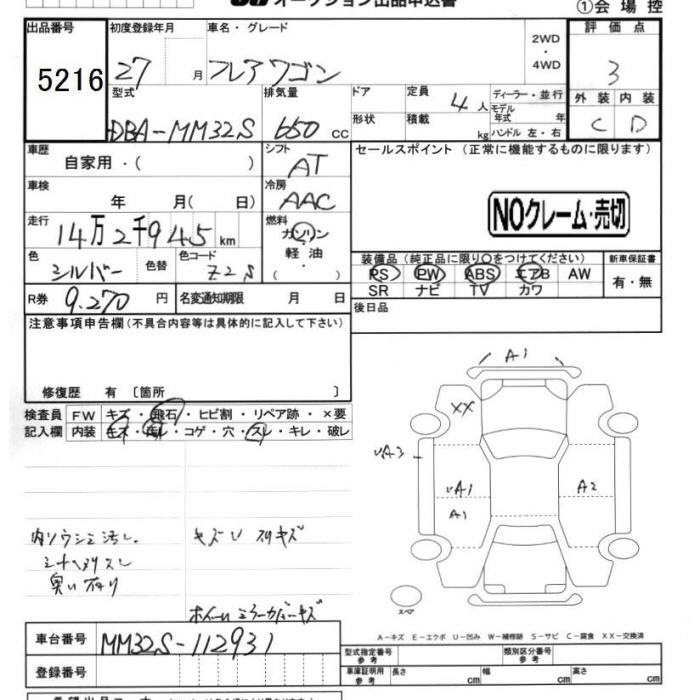 オークション出品申込書
①会場控
出品番号 初度登録年月 車名・グレード 2WD・4WD 評価点
5216 27 月 フレアワゴン 3
型式 排気量 ドア 定員 4人 ディーラー・並行 外装 内装
DBA-MM32S 650 cc 形状 積載 kg モデル年式 年 C D
ハンドル 左・右
車歴 シフト セールスポイント (正常に機能するものに限ります)
自家用・( ) AT
車検 冷房
年 月( 日) AAC NOクレーム・売切
走行 燃料
14万2千945 km ガソリン
軽油・( )
色 色替 色コード 装備品 (純正品に限り○をつけてください) 新車保証書
シルバー Z2S PS PW ABS エアB AW 有・無
SR ナビ TV カワ
R券 9.270 円 名変通知期限 月 日 後日品
注意事項申告欄 (不具合内容等は具体的に記入して下さい)
修復歴 有 〔箇所 〕
検査員 FW キズ・飛石・ヒビ割・リペア跡・×要
記入欄 内装 キズ・汚レ・コゲ・穴・スレ・キレ・破レ
A1
XX
UA3
UA1 A2
A1
内ソウシミ汚レ キズU スリキズ
シートヘタリスレ
臭い有り
ホイールミラーカバーキズ
スペア
A-キズ E-エクボ U-凹み W-補修跡 S-サビ C-腐食 XX-交換済
車台番号 MM32S-112931
登録番号
型式指定番号 参考 類別区分番号 参考
車庫証明用 参考 長さ cm 幅 cm 高さ cm